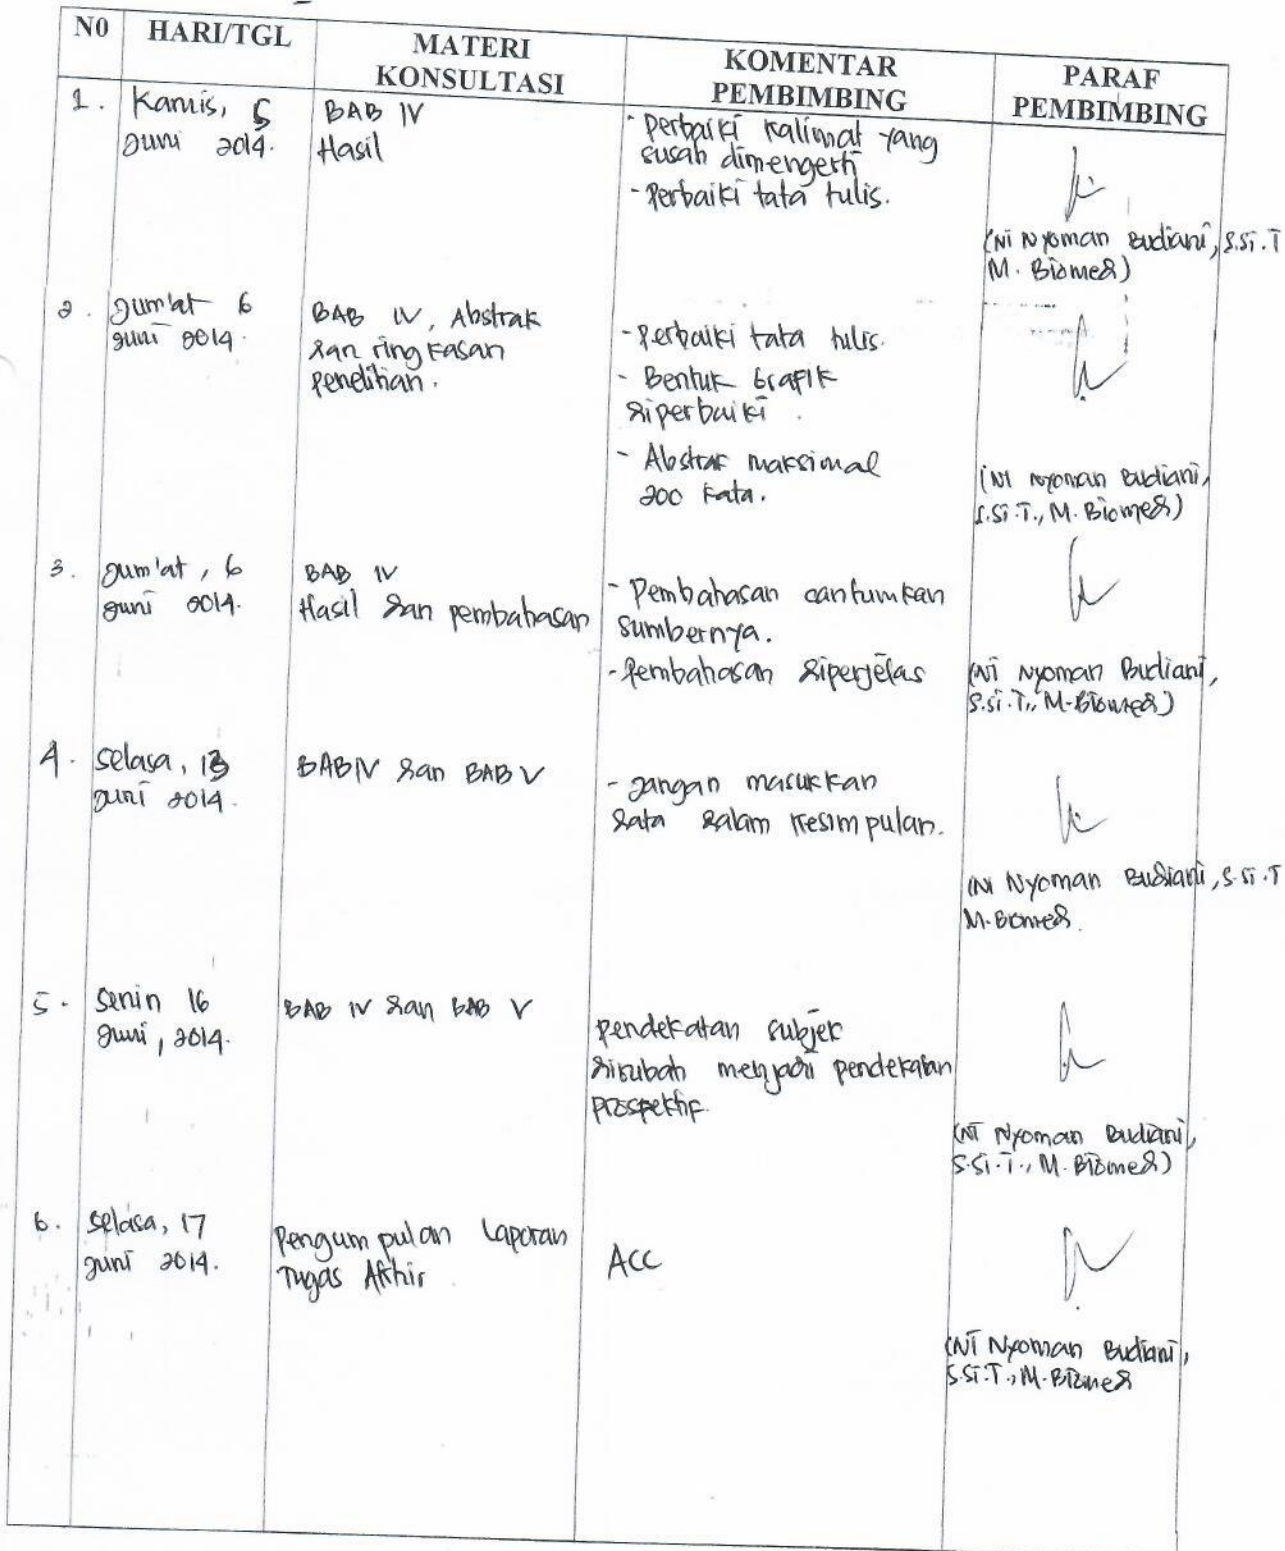 N0
HARI/TGL
MATERI
KONSULTASI
KOMENTAR
PEMBIMBING
PARAF
PEMBIMBING
1.
Kamis, 5
Juni 2014.
BAB IV
Hasil
- Perbaiki kalimat yang
susah dimengerti
- Perbaiki tata tulis.
(Ni Nyoman Budiani, S.Si.T
M. Biomed)
2.
Jum'at 6
Juni 2014.
BAB IV, Abstrak
dan ringkasan
penelitian.
- Perbaiki tata tulis.
- Bentuk Grafik
diperbaiki.
- Abstrak maksimal
200 kata.
(Ni Nyoman Budiani,
S.Si.T., M. Biomed)
3.
Jum'at, 6
Juni 2014.
BAB IV
Hasil dan pembahasan
- Pembahasan cantumkan
sumbernya.
- Pembahasan diperjelas
(Ni Nyoman Budiani,
S.Si.T., M. Biomed)
4.
Selasa, 13
Juni 2014.
BAB IV dan BAB V
- Jangan masukkan
data dalam kesimpulan.
(Ni Nyoman Budiani, S.Si.T
M. Biomed.
5.
Senin 16
Juni, 2014.
BAB IV dan BAB V
Pendekatan subjek
dirubah menjadi pendekatan
prospektif.
(Ni Nyoman Budiani,
S.Si.T., M. Biomed)
6.
Selasa, 17
Juni 2014.
Pengumpulan Laporan
Tugas Akhir
ACC
(Ni Nyoman Budiani,
S.Si.T., M. Biomed